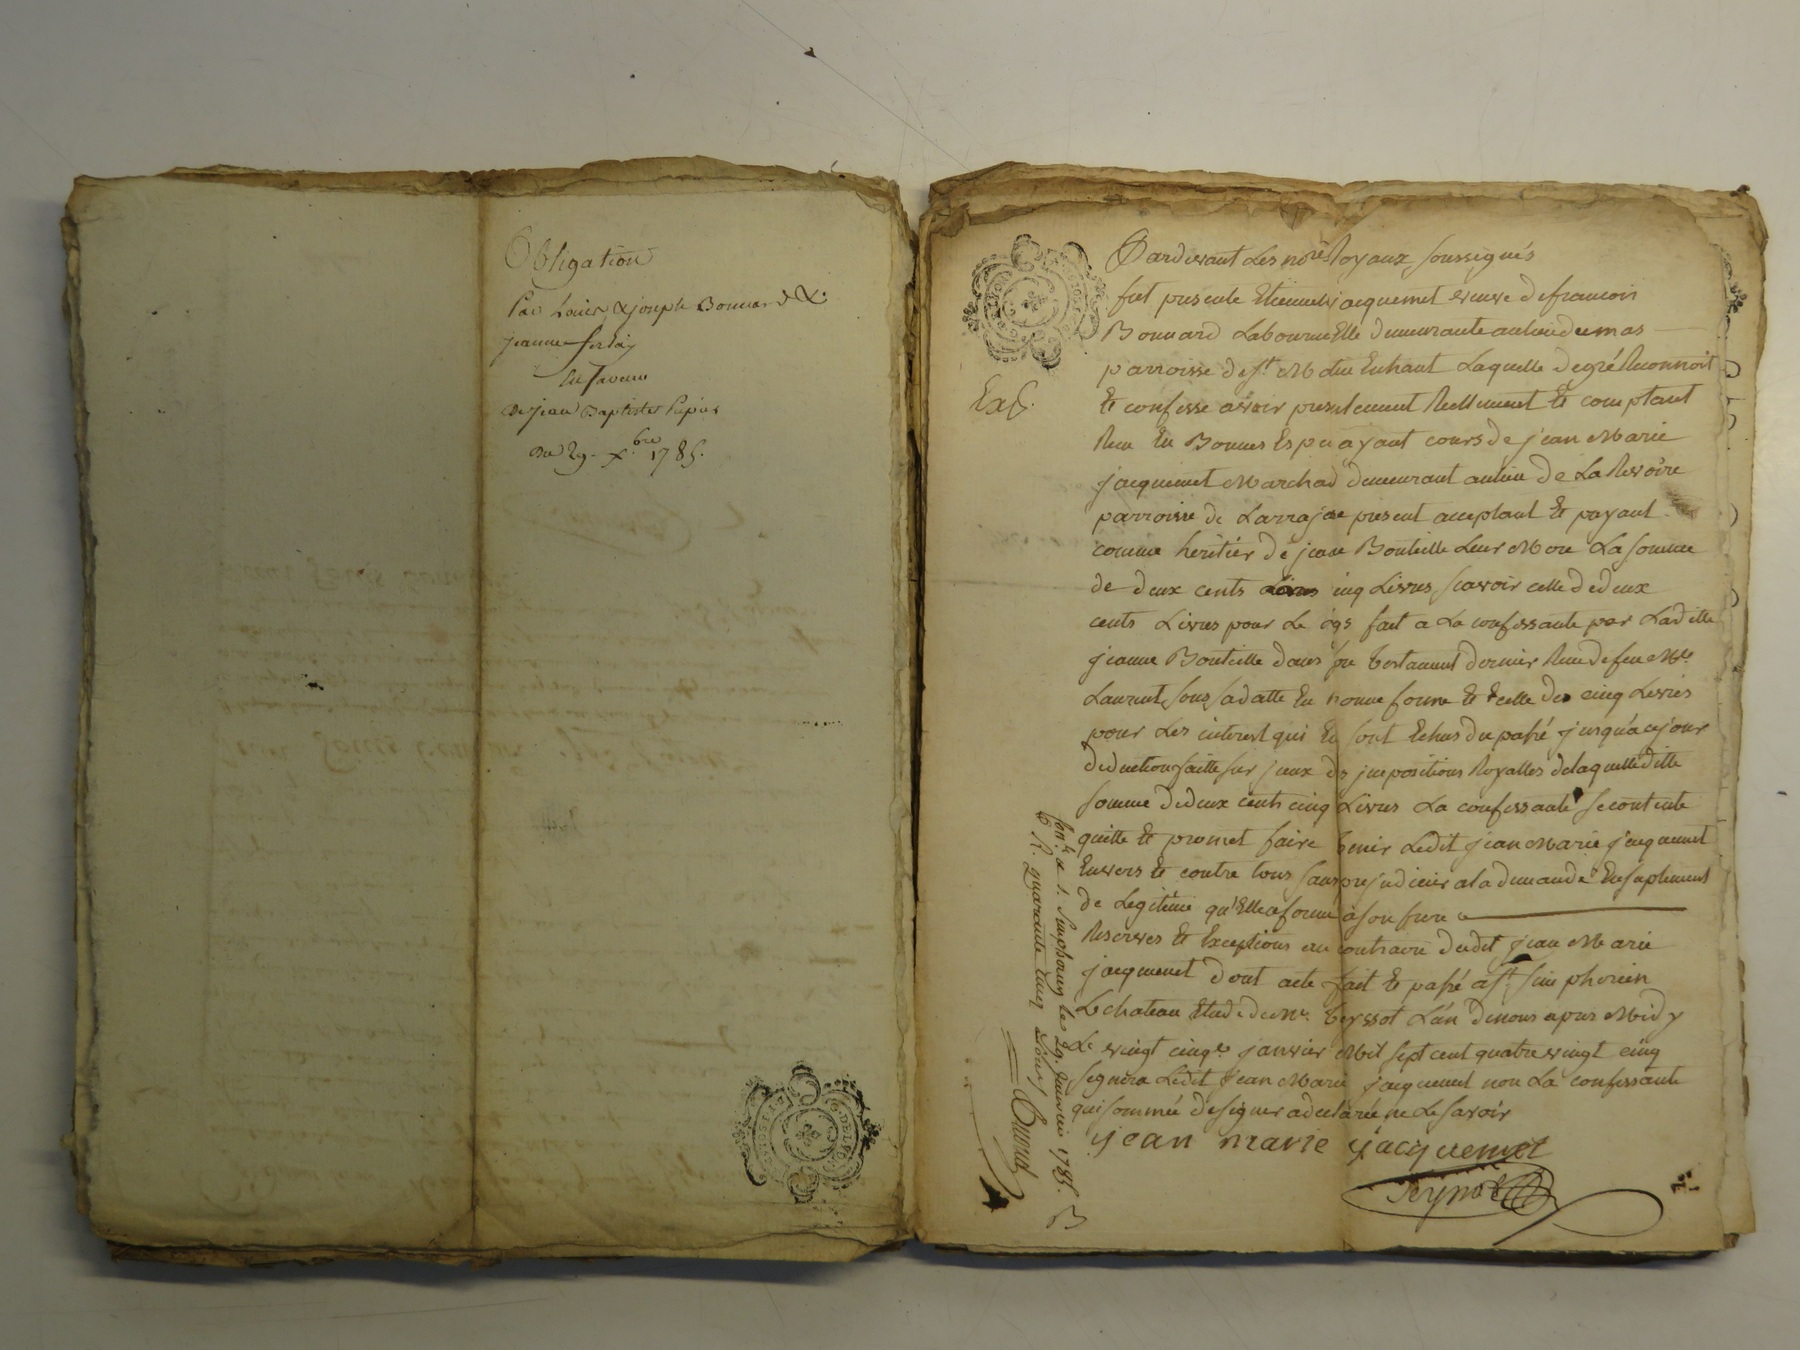 Obligation
Par Louis & joseph Bonnard &
jeanne
En faveur
de jean Baptiste
Du 29. Xbre 1785.
Pardevant Les nores Royaux soussignés
fut presente Etiennette jacquemet veuve de francois
Bonnard Laboureur Elle demeurante au lieu du mas
parroisse de st. En haut Laquelle de gré Reconnoit
Exp.
Et confesse avoir presentement Reellement Et comptant
Recu En Bonnes Especes ayant cours de jean Marie
jacquemet Marchad demeurant au lieu de La Revoire
parroisse de Larrajasse present acceptant Et payant
comme heritier de jeane Bouteille Leur Mere La somme
de deux cents cinq Livres scavoir celle de deux
cents Livres pour Le legs fait a La confessante par Laditte
jeanne Bouteille dans son testament dernier Recu de feu Me
Laurent sous sa datte En bonne forme Et celle des cinq Livres
pour Les interest qui En sont Echus du passé jusqu'a ce jour
deduction faitte sur jceux des jmpositions Royalles de laquelle ditte
somme de deux cents cinq Livres La confessante se contente
quitte Et promet faire tenir Ledit jean Marie jacquemet
Envers Et contre tous sans prejudicier a la demande En suplement
de Legitime qu'Elle a formé à son frere
Reserves Et Exceptions au contraire dudit jean Marie
jacquemet dont acte fait Et passé a st simphorien
Le chateau Etude de Me. teyssot L'an de nous apres Midy
Le vingt cinqe janvier Mil sept cent quatre vingt cinq
signera Ledit jean Marie jacquemet non La confessante
qui sommée de signer a declarée ne Le savoir
jean marie jacquemet
Conlé a s. Simphorien le 29. Janvier 1785.
R. quarante deux sols